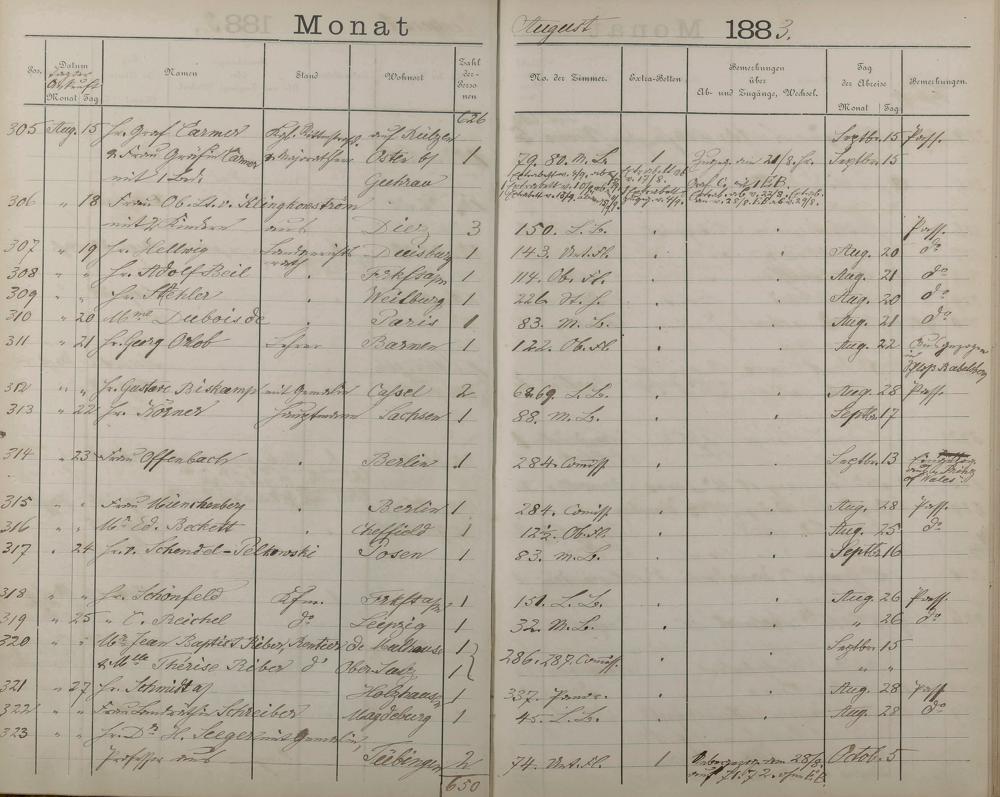 Monat August 1883.
Pos. Datum Tag der Ankunft Monat Tag Namen Stand Wohnort Zahl der Personen No. der Zimmer. Extra-Betten Bemerkungen über Ab- und Zugänge, Wechsel. Tag der Abreise Monat Tag Bemerkungen.
626
305 Aug. 15 Hr. Graf Carmer auf Rützen Septbr. 15 Pass.
u. Frau Gräfin Carmer Osten b/ 1 79. 80. M. L. 1 Zugang am 21/8. Hr. Septbr. 15
mit 1 Bed. Guhrau Graf C.
306 " 18 Frau Ob. Lt. v. Klinghowström
mit 2 Kindern aus Diez 3 150. L. L. Pass.
307 " 19 Hr. Hellwig Landgerichtsrath Duisburg 1 143. Unt. Fl. Aug. 20 do
308 " " Hr. Adolf Beil Frkft a/m 1 114. Ob. Fl. Aug. 21 do
309 " " Hr. Stehler Weilburg 1 226. St. H. Aug. 20 do
310 " 20 Mme Dubois de Paris 1 83. M. L. Aug. 21 do
311 " 21 Hr. Georg Orlob Lehrer Barmen 1 122. Ob. Fl. Aug. 22 Ausgezogen
312 " " Hr. Gustave Biskamp mit Gemalin Cassel 2 68. 69. L. L. Aug. 28 Pass.
313 " 22 Hr. Körner Hauptmann Sachsen 1 88. M. L. Septbr. 17
314 " 23 Frau Offenbach Berlin 1 284. Commiss. Septbr. 13 Prince of Wales
315 " " Frau Muenchenberg Berlin 1 284. Commiss. Aug. 28 Pass.
316 " " Mr. Ed. Beckett Cheffield 1 122. Ob. Fl. Aug. 25 do
317 " 24 Hr. v. Schendel-Pelkowski Posen 1 83. M. L. Septbr. 16
318 " " Hr. Schönfeld Kfm. Frkft a/m 1 151. L. L. Aug. 26 Pass.
319 " 25 " C. Reichel do Leipzig 1 32. M. L. " 26 do
320 " " Mr. Jean Baptist Riber, Rentier de Mulhouse 1 Septbr. 15
& Mlle Thérise Riber do Ober-Elsaß 1 286. 287. Commiss. " "
321 " 27 Hr. Schmidt Holzhausen 1 337. Aug. 28 Pass
322 " " Frau Landräthin Schreiber Magdeburg 1 45. L. L. Aug. 28 do
323 " " Hr. Dr. H. Seeger mit Gemalin,
Professor aus Tübingen 2 74. Unt. Fl. 1 Umgezogen am 28/8. auf 71. 72. ohne E.B. Octob. 5
650